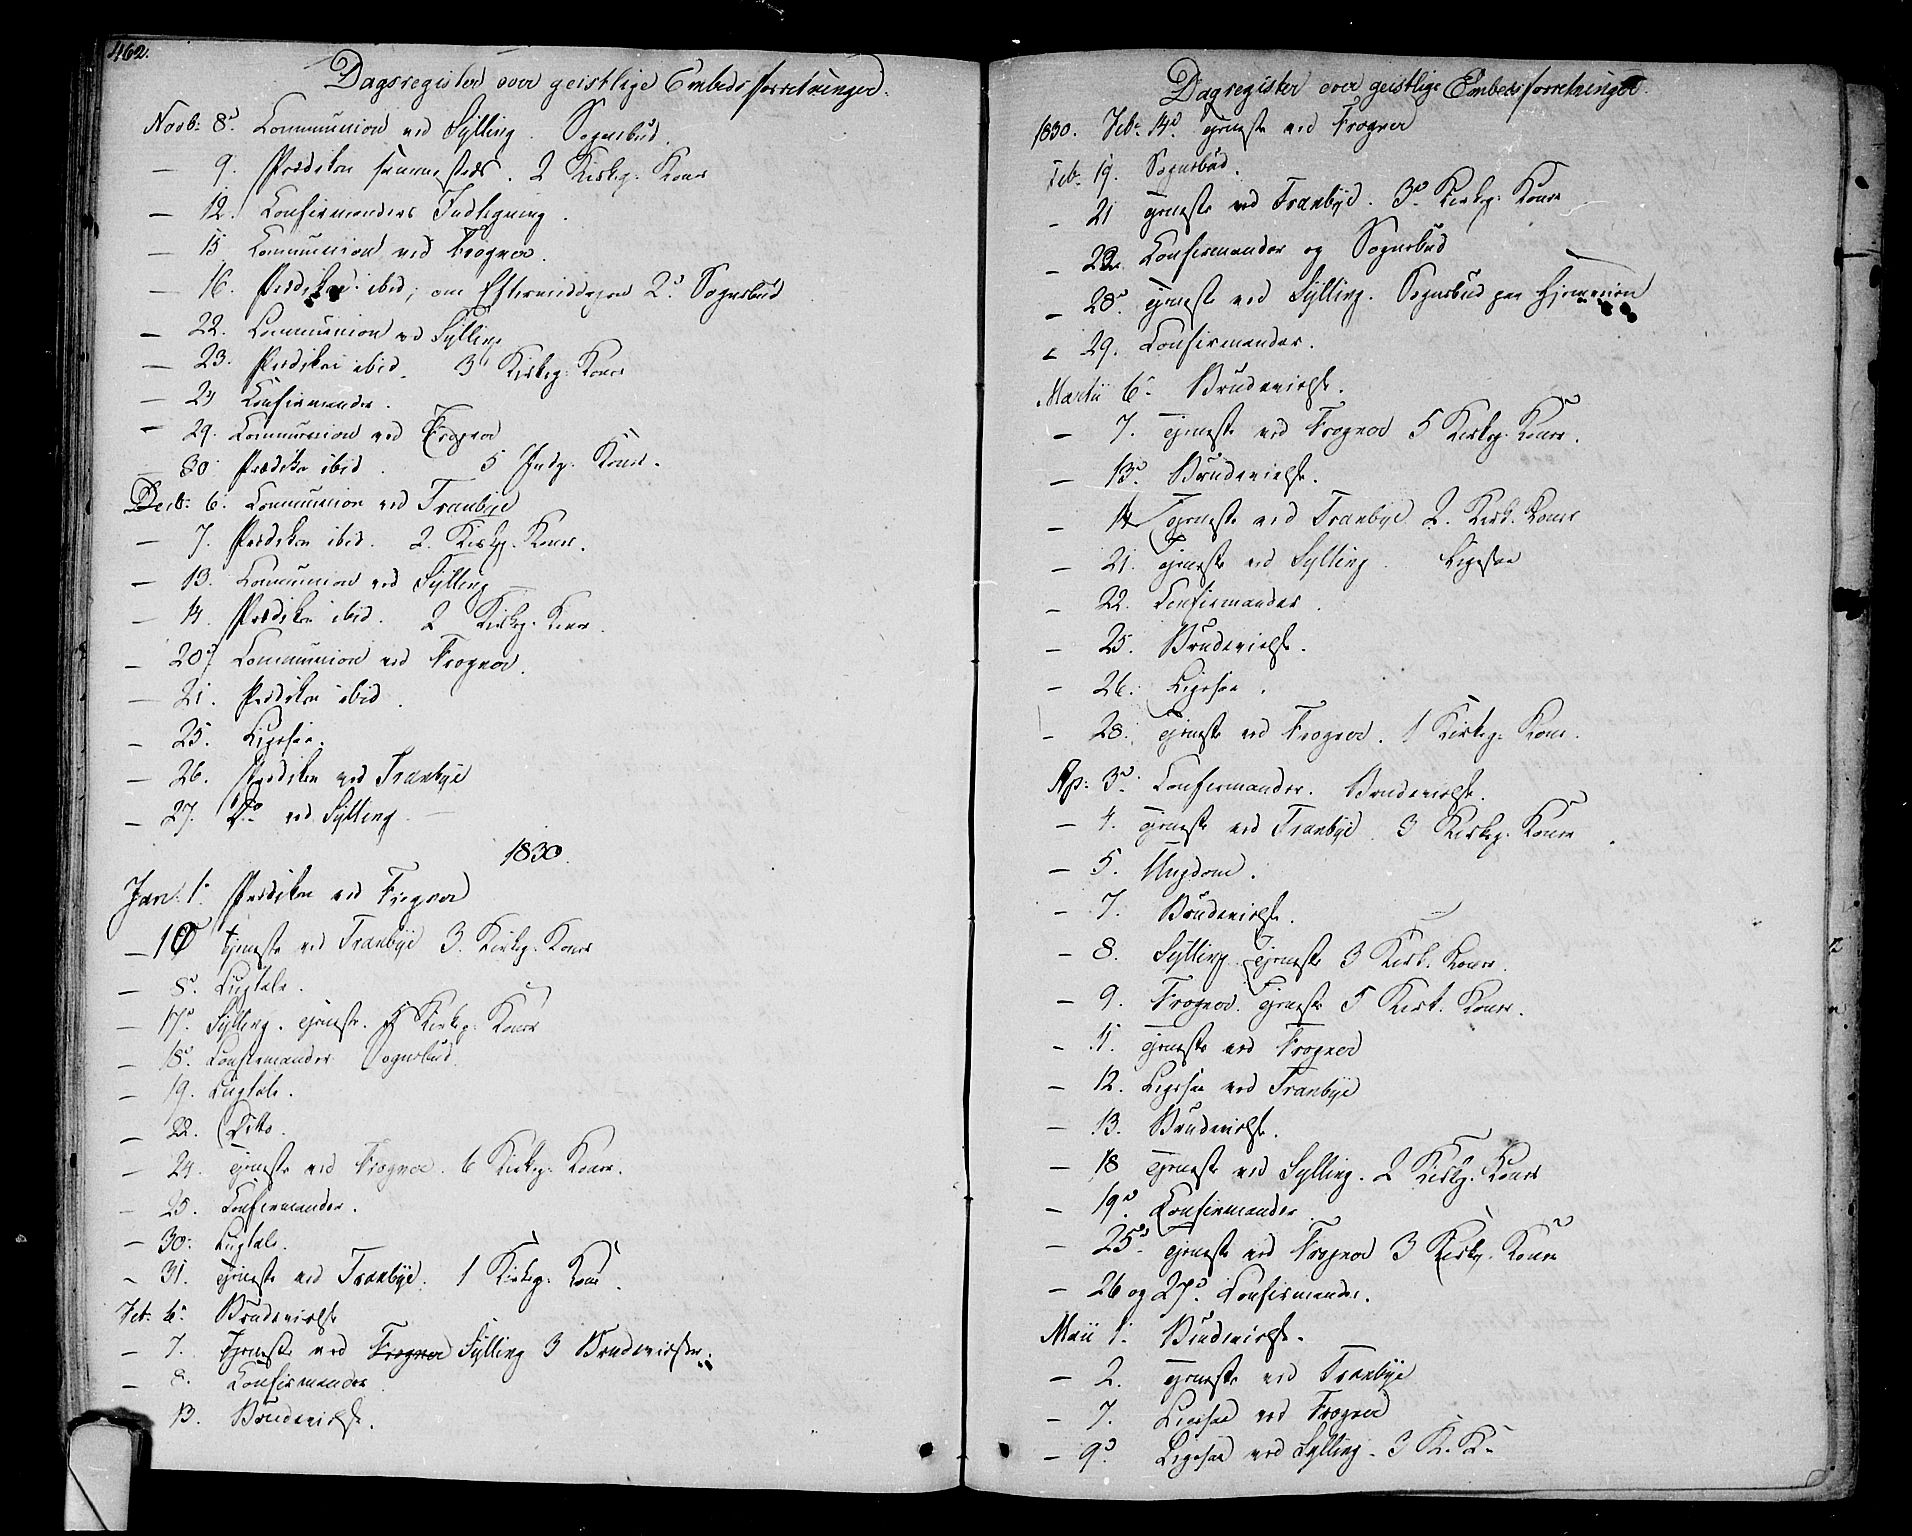 462.
Dagsregister over geistlige Embedsforretninger.
Novb: 8d. Communion ved Sylling. Sognebud.
— 9. Prædiken sammesteds. 2 Kirkeg: Koner
— 12. Confirmanders Indtegning.
— 15 Communion ved Frogner.
— 16. Prædiken ibid; om Eftermiddagen 2d Sognebud
— 22. Communion ved Sylling
— 23. Prædiken ibid. 3 Kirkeg: Koner
— 24 Confirmander.
— 29. Communion ved Frogner
— 30 Prædiken ibid. 5 Indg. Koner.
Decb: 6. Communion ved Tranbye
— 7. Prædiken ibid. 2. Kirkeg. Koner.
— 13. Communion ved Sylling
— 14. Prædiken ibid. 2 Kirkeg. Koner.
— 20d. Communion ved Frogner.
— 21. Prædiken ibid.
— 25. Ligesaa.
— 26. Prædiken ved Tranbye
— 27. Do ved Sylling.
1830.
Jan: 1. Prædiken ved Frogner
— 10 Tjeneste ved Tranbye 3. Kirkeg. Koner
— 8d. Liigtale.
— 17d Sylling. Tjeneste. 5 Kirkeg: Koner
— 18d Confirmander Sognebud.
— 19. Liigtale.
— 22. Ditto.
— 24. Tjeneste ved Frogner. 6 Kirkeg: Koner.
— 25. Confirmander.
— 30. Liigtale.
— 31. Tjeneste ved Tranbye. 1 Kirkeg: Kone.
Feb: 6d Brudevielse
— 7. Tjeneste ved Frogner Sylling 3 Brudevielser.
— 8. Confirmander
13. Brudevielse.
Dagregister over geistlige Embedsforretninger.
1830. Feb: 14d. Tjeneste ved Frogner
Feb: 19. Sognebud.
— 21 Tjeneste ved Tranbye. 3d. Kirkeg: Koner
— 22. Confirmander og Sognebud
— 28d Tjeneste ved Sylling. Sognebud paa Hjemveien
— 29. Confirmander.
Martii 6d Brudevielse.
— 7. Tjeneste ved Frogner 5 Kirkeg. Koner.
— 13d Brudevielse.
— 14 Tjeneste ved Tranbye 2. Kirk. Koner
— 21. Tjeneste ved Sylling. Ligesaa
— 22. Confirmander.
— 25. Brudevielse.
— 26. Ligesaa.
— 28. Tjeneste ved Frogner. 1 Kirkeg: Kone.
Ap: 3d. Confirmander. Brudevielse.
— 4. Tjeneste ved Tranbye. 3 Kirkeg. Koner
— 5. Ungdom.
— 7. Brudevielse.
— 8. Sylling Tjeneste 3 Kirk. Koner.
— 9. Frogner. Tjeneste 5 Kirk. Koner.
— 11. Tjeneste ved Frogner
— 12. Ligesaa ved Tranbye
— 13. Brudevielse.
— 18 Tjeneste ved Sylling. 2 Kirkeg. Koner
— 19d. Confirmander
— 25d. Tjeneste ved Frogner 3 Kirkeg. Koner
— 26 og 27d. Confirmander.
Maii 1. Brudevielse.
— 2. Tjeneste ved Tranbye
— 7. Ligesaa ved Frogner
— 9d. Ligesaa ved Sylling. 3 K. K.